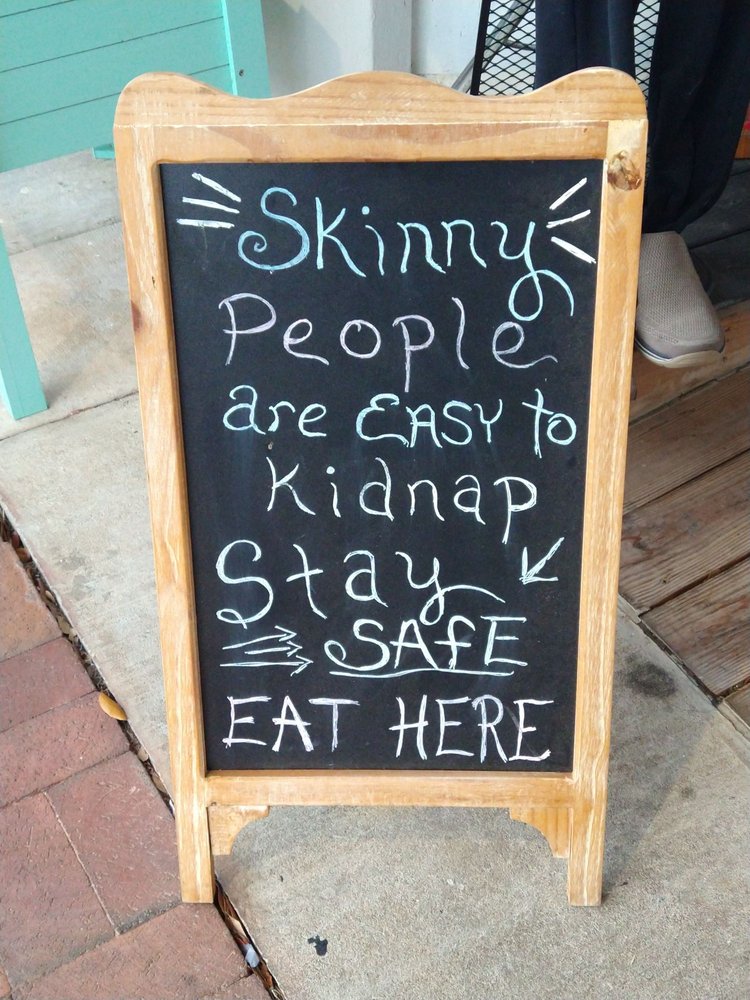 Skinny
People
are EASY to
Kidnap
Stay
SAfE
EAT HERE